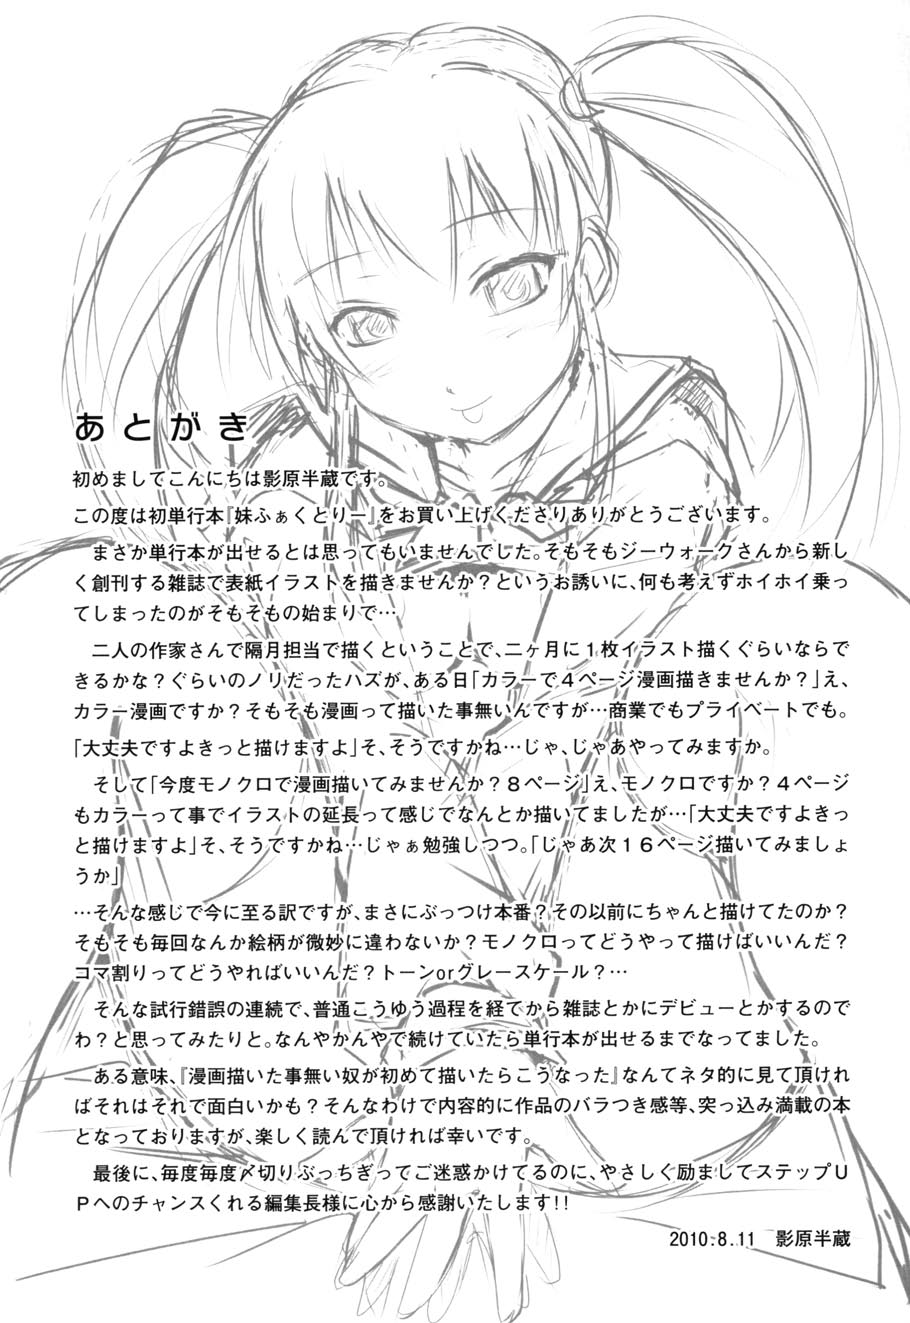 あとがき
初めましてこんにちは影原半蔵です。
この度は初単行本『妹ふぁくとりー』をお買い上げくださりありがとうございます。
まさか単行本が出せるとは思ってもいませんでした。そもそもジーウォークさんから新し
く創刊する雑誌で表紙イラストを描きませんか？というお誘いに、何も考えずホイホイ乗っ
てしまったのがそもそもの始まりで…
二人の作家さんで隔月担当で描くということで、二ヶ月に１枚イラスト描くぐらいならで
きるかな？ぐらいのノリだったハズが、ある日「カラーで４ページ漫画描きませんか？」え、
カラー漫画ですか？そもそも漫画って描いた事無いんですが…商業でもプライベートでも。
「大丈夫ですよきっと描けますよ」そ、そうですかね…じゃ、じゃあやってみますか。
そして「今度モノクロで漫画描いてみませんか？８ページ」え、モノクロですか？４ページ
もカラーって事でイラストの延長って感じでなんとか描いてましたが…「大丈夫ですよきっ
と描けますよ」そ、そうですかね…じゃぁ勉強しつつ。「じゃあ次１６ページ描いてみましょ
うか」
…そんな感じで今に至る訳ですが、まさにぶっつけ本番？その以前にちゃんと描けてたのか？
そもそも毎回なんか絵柄が微妙に違わないか？モノクロってどうやって描けばいいんだ？
コマ割りってどうやればいいんだ？トーンorグレースケール？…
そんな試行錯誤の連続で、普通こうゆう過程を経てから雑誌とかにデビューとかするので
わ？と思ってみたりと。なんやかんやで続けていたら単行本が出せるまでなってました。
ある意味、『漫画描いた事無い奴が初めて描いたらこうなった』なんてネタ的に見て頂けれ
ばそれはそれで面白いかも？そんなわけで内容的に作品のバラつき感等、突っ込み満載の本
となっておりますが、楽しく読んで頂ければ幸いです。
最後に、毎度毎度〆切りぶっちぎってご迷惑かけてるのに、やさしく励ましてステップＵ
Ｐへのチャンスくれる編集長様に心から感謝いたします！！
2010.8.11　影原半蔵